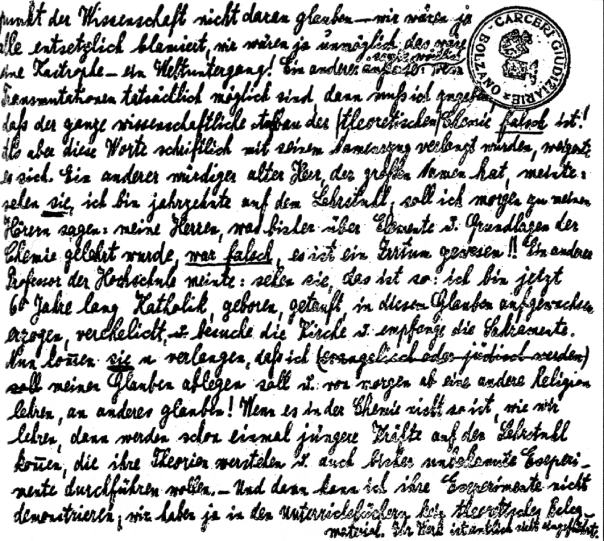 punkt der Wissenschaft nicht daran glauben – wir wären ja
alle entsetzlich blamiert, wir wären ja unmöglich, das wäre
eine Katastrophe – ein Weltuntergang! Ein anderer
Transmutationen tatsächlich möglich sind, dann muß ich zugeben
daß der ganze wissenschaftliche Aufbau der (theoretischen) Chemie falsch ist!
Als aber diese Worte schriftlich mit seinem verlangt wurden, weigerte
er sich. Ein anderer würdiger alter Herr, der großen Namen hat, meinte:
sehen sie, ich bin jahrzehnte auf dem Lehrstuhl, soll ich morgen zu meinen
Hörern sagen: meine Herren, was bisher über Elemente u. Grundlagen der
Chemie gelehrt wurde, war falsch, es ist ein Irrtum gewesen!! Ein anderer
Professor der Hochschule meinte: sehen sie, das ist so: ich bin jetzt
60 Jahre lang Katholik, geboren, getauft, in diesen Glauben aufgewachsen
erzogen, verehelicht, u. besuche die Kirche u. empfange die Sakramente.
Nun können sie verlangen, daß ich (evangelisch oder jüdisch werden)
soll meinen Glauben ablegen soll u. von morgen ab eine andere Religion
lehren, an anderes glauben! Wenn es in der Chemie nicht so ist, wie wir
lehren, dann werden schon einmal jüngere Kräfte auf den Lehrstuhl
kommen, die ihre Theorien verstehen u. auch bisher unbekannte Experi-
mente durchführen wollen. – Und dann kann ich ihre Experimente nicht
demonstrieren; wir haben ja in den Unterrichtsfächern kein theoretisches Beleg-
material. Ihr Werk ist amtlich nicht eingeführt.
CARCERI GIUDIZIARIE BOLZANO